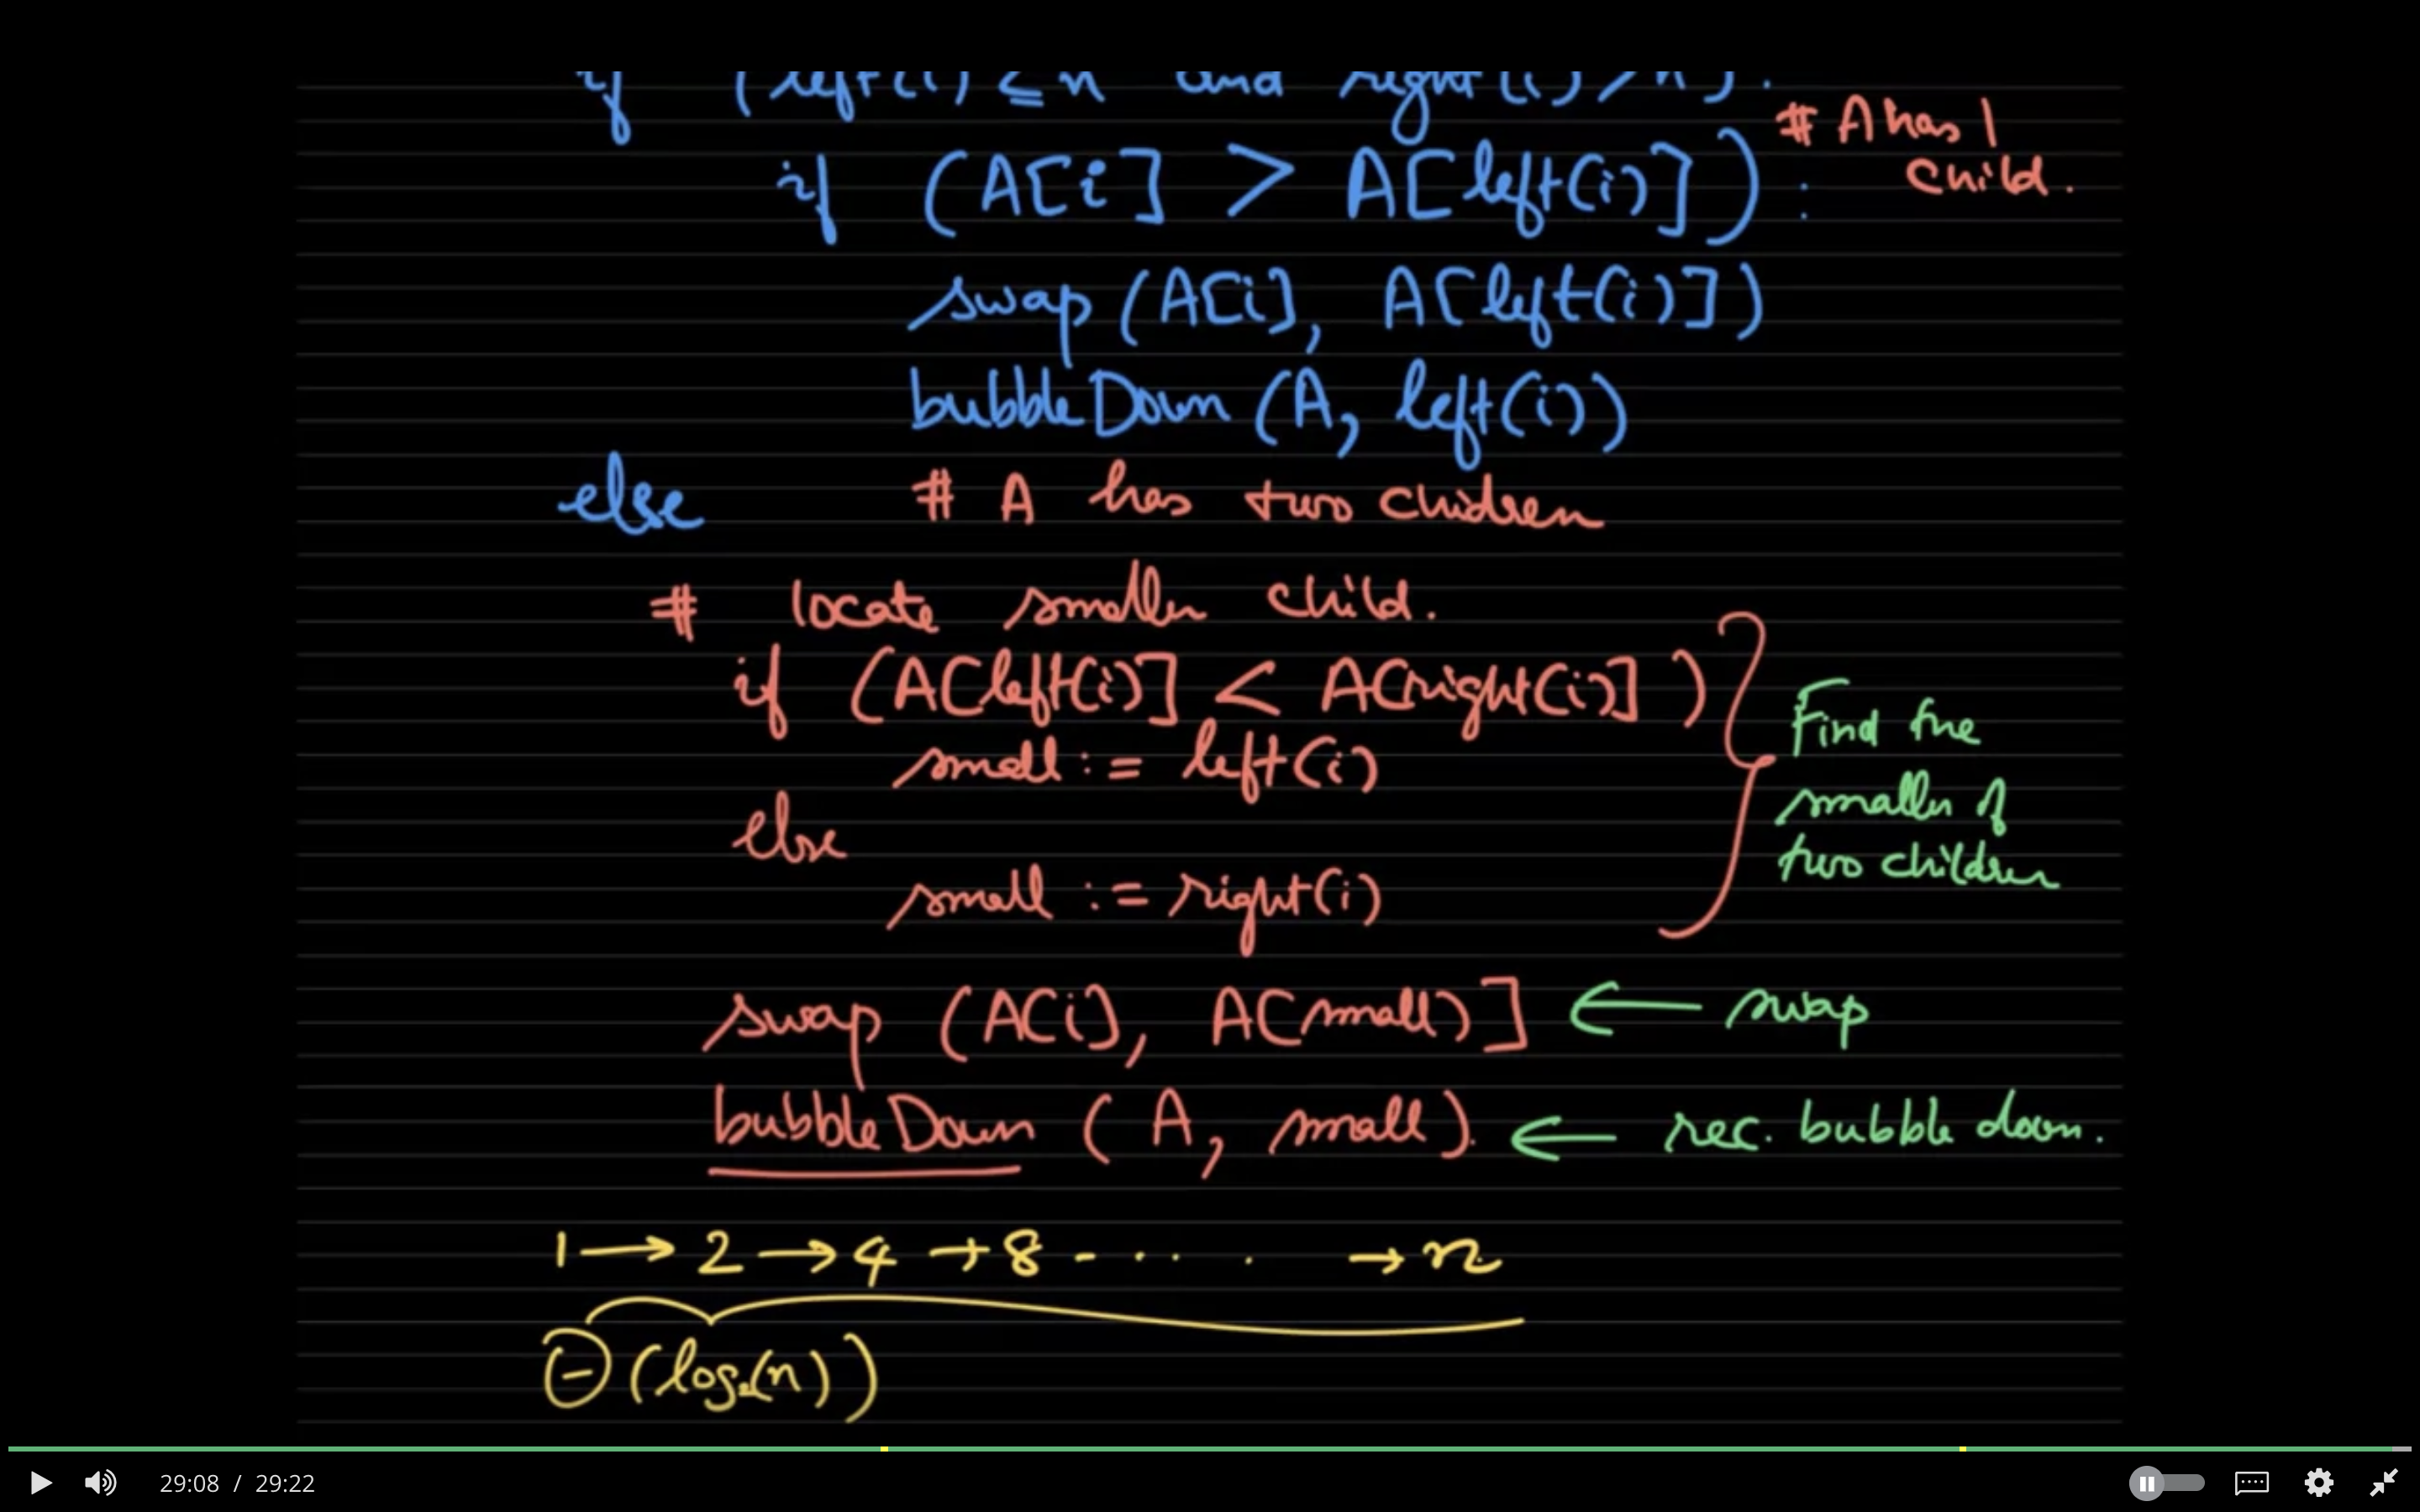 if (left(i) ≤ n and right(i) > n).
# A has 1
child.
if (A[i] > A[left(i)]) :
swap (A[i], A[left(i)])
bubbleDown (A, left(i))
else # A has two children
# locate smaller child.
if (A[left(i)] < A[right(i)])
small := left(i)
else
small := right(i)
Find the
smaller of
two children
swap (A[i], A[small)] ← swap
bubbleDown (A, small). ← rec. bubble down.
1 → 2 → 4 → 8 - · · · · → n
Θ(log₂(n))
29:08 / 29:22